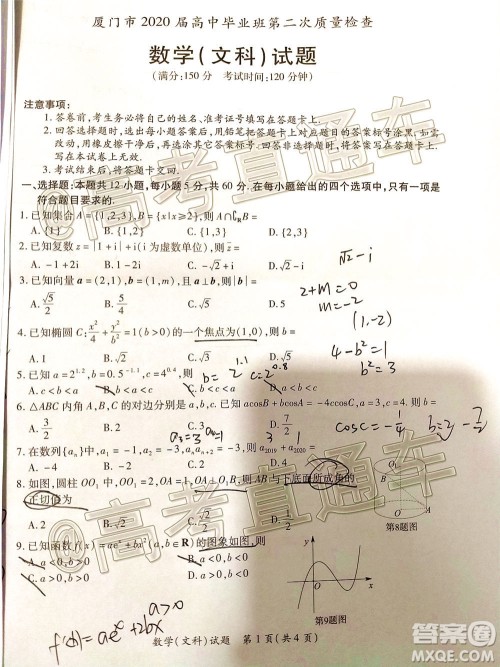 厦门市 2020 届高中毕业班第二次质量检查
数学(文科)试题
(满分:150 分 考试时间:120 分钟)
注意事项:
1. 答卷前,考生务必将自己的姓名、准考证号填写在答题卡上.
2. 回答选择题时,选出每小题答案后,用铅笔把答题卡上对应题目的答案标号涂黑.如改
动,用橡皮擦干净后,再选涂其他答案标号.回答非选择题时,将答案写在答题卡上.写
在本试卷上无效.
3. 考试结束后,将答题卡交回.
一、选择题:本题共 12 小题,每小题 5 分,共 60 分.在每小题给出的四个选项中,只有一项是
符合题目要求的.
1. 已知集合 A={1,2,3}, B={x|x≥2},则 A∩∁RB=
A. {1} B. {1,2} C. {2,3} D. {1,2,3}
2. 已知复数 z=|1+i|+i(i 为虚数单位),则
A. -1+2i B. 1-2i C. -√2+i D. √2-i
√2-i
3. 已知向量 a=(2,1), b=(1,m),且
A. √5/2 B. 5/4 C. D. 5
2+m=0
m=-2
(1,-2)
4. 已知椭圆 C: x²/4+y²/b²=1(b>0)的一个焦点为(1,0),则 b=
A. 1 B. √2 C. √3 D. √5
4-b²=1
b²=3
5. 已知 a=2^1.2, b=0.5^-1.1, c=4^0.4,则
b=2^1.1 c=2^0.8
A. c<b<a B. c<a<b C. b<c<a D.
6. △ABC 内角 A,B,C 的对边分别是 a,b,c. 已知 acosB+bcosA=-4ccosC,a=3,
A. 3/2 B. 2 C. 3 D. 7/2
cosC=-1/4
7. 在数列{aₙ}中,a₁=-1,a₂=-3, 则 a₂₀₁₉+a₂₀₂₀=
a₃=3
A. -4 B. -2 C. 2 D. 4
8. 如图,圆柱 OO₁ 中,OO₁=2,OA=1,OA⊥O₁B,则 AB 与下底面所成角的
正切值为
A. 2 B. √2 C. D.
第8题图
9. 已知函数 f(x)=aeˣ+bx²(a,b∈R)的图象如图,则
A. a<0,b>0 B. a<0,b<0
C. a>0,b>0 D. a>0,b<0
第9题图
a>0
f'(x)=aeˣ+2bx
数学(文科)试题 第 1 页(共 4 页)
@高考直通车
@高考直通车
答案圈